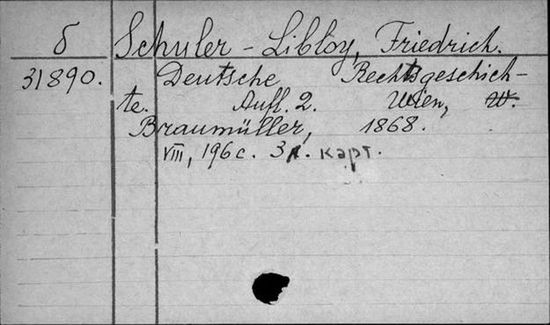 б Schuler-Libloy, Friedrich.
31890. Deutsche Rechtsgeschich-
te. Aufl. 2. Wien, W.
Braumüller, 1868.
VIII, 196 с. 3 л. карт.